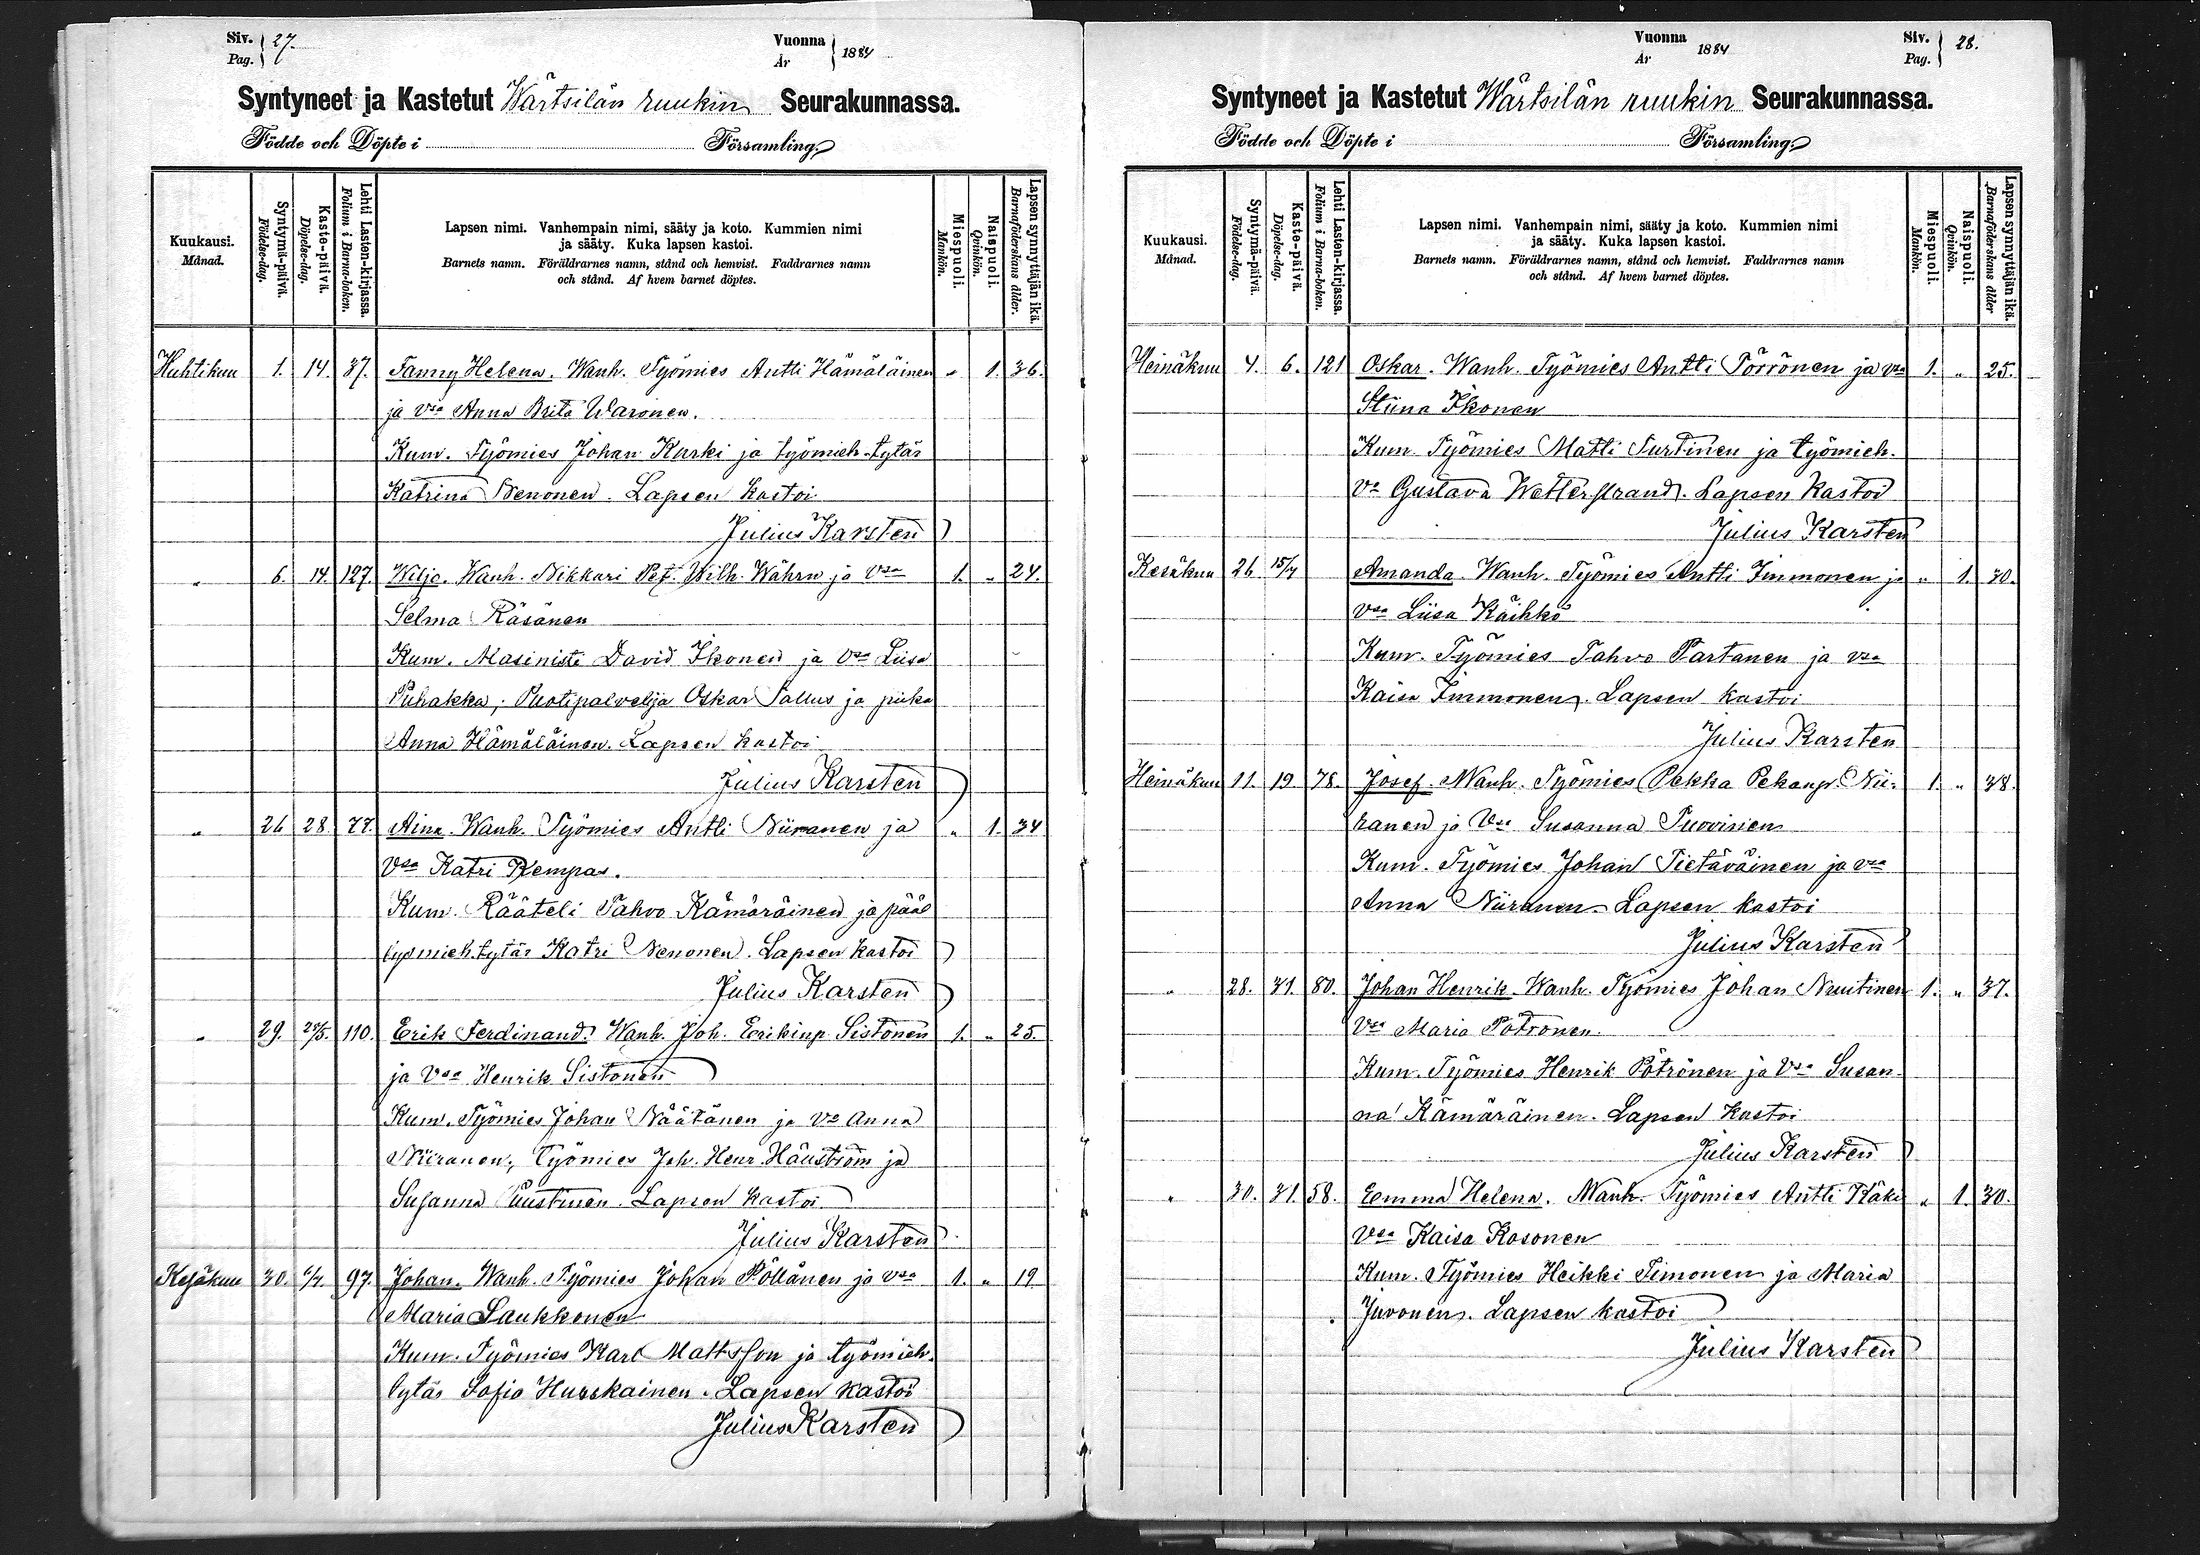 Siv. 27.
Pag.
Vuonna
År
1884
Syntyneet ja Kastetut Wärtsilän ruukin Seurakunnassa.
Födde och Döpte i Församling.
Kuukausi.
Månad.
Syntymä-päivä.
Födelse-dag.
Kaste-päivä.
Döpelse-dag.
Lehti Lasten-kirjassa.
Folium i Barna-boken.
Lapsen nimi. Vanhempain nimi, sääty ja koto. Kummien nimi
ja sääty. Kuka lapsen kastoi.
Barnets namn. Föräldrarnes namn, stånd och hemvist. Faddrarnes namn
och stånd. Af hvem barnet döptes.
Miespuoli.
Mankön.
Naispuoli.
Qvinkön.
Lapsen synnyttäjän ikä.
Barnaföderskans ålder.
Huhtikuu 1. 14. 37. Fanny Helena. Wanh. Työmies Antti Hämäläinen " 1. 36.
ja vsa Anna Brita Waronen.
Kum. Työmies Johan Karki ja työmieh. tytär
Katrina Nenonen. Lapsen kastoi
Julius Karsten
" 6. 14. 127. Wiljo. Wanh. Nikkari Pet. Wilh. Wåhrn ja Vsa 1. " 24.
Selma Räsänen
Kum. Masinisti David Ikonen ja Vsa Liisa
Puhakka; Puotipalvelija Oskar Tallus ja piika
Anna Hämäläinen. Lapsen kastoi
Julius Karsten
" 26 28. 77. Aina. Wanh. Työmies Antti Niiranen ja " 1. 34
Vsa Katri Kempas.
Kum. Räåteli Tahvo Kämäräinen ja pääl
työmieh. tytär Katri Nenonen. Lapsen kastoi
Julius Karsten
" 29. 110. Erik Ferdinand. Wanh. Joh. Erikinp Sistonen 1. " 25.
ja Vsa Henrik Sistonen
Kum. Työmies Johan Näätänen ja Va Anna
Niiranen; Työmies Joh. Henr. Häuström ja
Susanna Puustinen. Lapsen kastoi
Julius Karsten
Kesäkuu 30. 6/7. 97. Johan. Wanh. Työmies Johan Pöllänen ja vsa 1. " 19.
Maria Laukkonen
Kum. Työmies Karl Mattsson ja työmieh.
tytär Sofia Hurskainen. Lapsen kastoi
Julius Karsten
Vuonna
År
1884
Siv. 28.
Pag.
Syntyneet ja Kastetut Wärtsilän ruukin Seurakunnassa.
Födde och Döpte i Församling.
Kuukausi.
Månad.
Syntymä-päivä.
Födelse-dag.
Kaste-päivä.
Döpelse-dag.
Lehti Lasten-kirjassa.
Folium i Barna-boken.
Lapsen nimi. Vanhempain nimi, sääty ja koto. Kummien nimi
ja sääty. Kuka lapsen kastoi.
Barnets namn. Föräldrarnes namn, stånd och hemvist. Faddrarnes namn
och stånd. Af hvem barnet döptes.
Miespuoli.
Mankön.
Naispuoli.
Qvinkön.
Lapsen synnyttäjän ikä.
Barnaföderskans ålder
Heinäkuu 4. 6. 121 Oskar. Wanh. Työmies Antti Törrönen ja vsa 1. " 25.
Stiina Ikonen
Kum Työmies Matti Turtinen ja työmieh.
Va Gustava Wetterstrand. Lapsen kastoi
Julius Karsten
Kesäkuu 26 15/7 Amanda. Wanh. Työmies Antti Immonen ja " 1. 30.
Vsa Liisa Käihkö
Kum. Työmies Tahvo Partanen ja vsa
Kaisa Immonen. Lapsen kastoi
Julius Karsten
Heinäkuu 11. 19. 78. Josef. Wanh. Työmies Pekka Pekanp. Nii- 1. " 38.
ranen ja Vsa Susanna Puovinen
Kum. Työmies Johan Pietäväinen ja vsa
Anna Niiranen. Lapsen kastoi
Julius Karsten
" 28. 31. 80. Johan Henrik. Wanh. Työmies Johan Nuutinen 1. " 37.
Vsa Maria Potronen.
Kum. Työmies Henrik Pötrönen ja Vsa Susan-
na Kämäräinen. Lapsen kastoi
Julius Karsten
" 30. 31. 58. Emma Helena. Wanh. Työmies Antti Käki " 1. 30.
Vsa Kaisa Kosonen
Kum. Työmies Heikki Timonen ja Maria
Juvonen. Lapsen kastoi
Julius Karsten